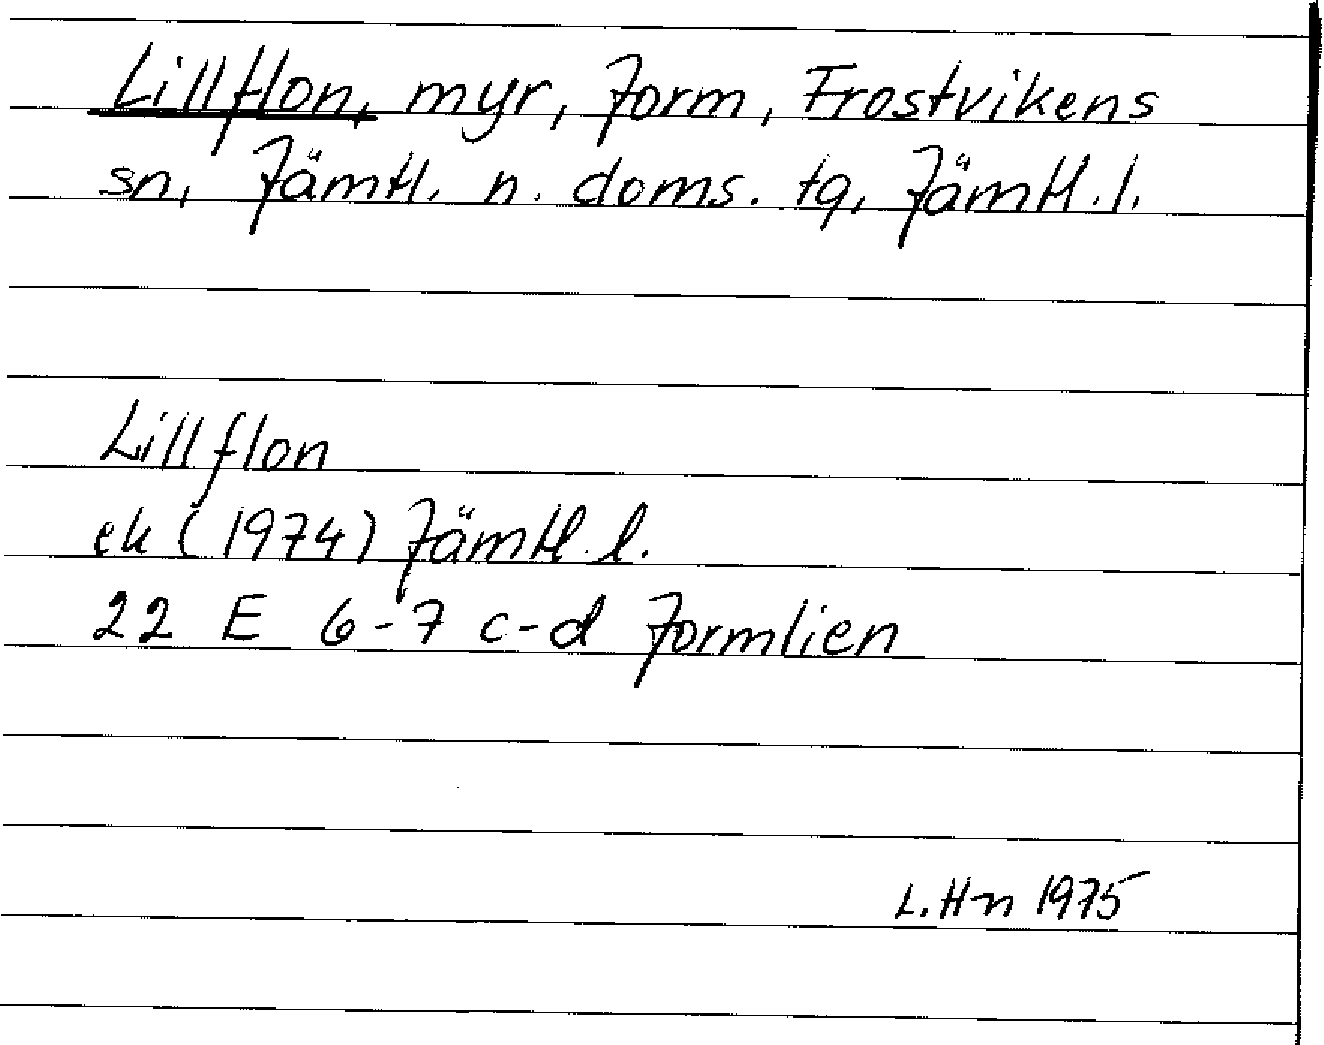 Lillflon, myr, Jorm, Frostvikens
sn, Jämtl. n. doms. tg, Jämtl. l.
Lillflon
ek (1974) Jämtl. l.
22 E 6-7 c-d Jormlien
L. Hn 1975